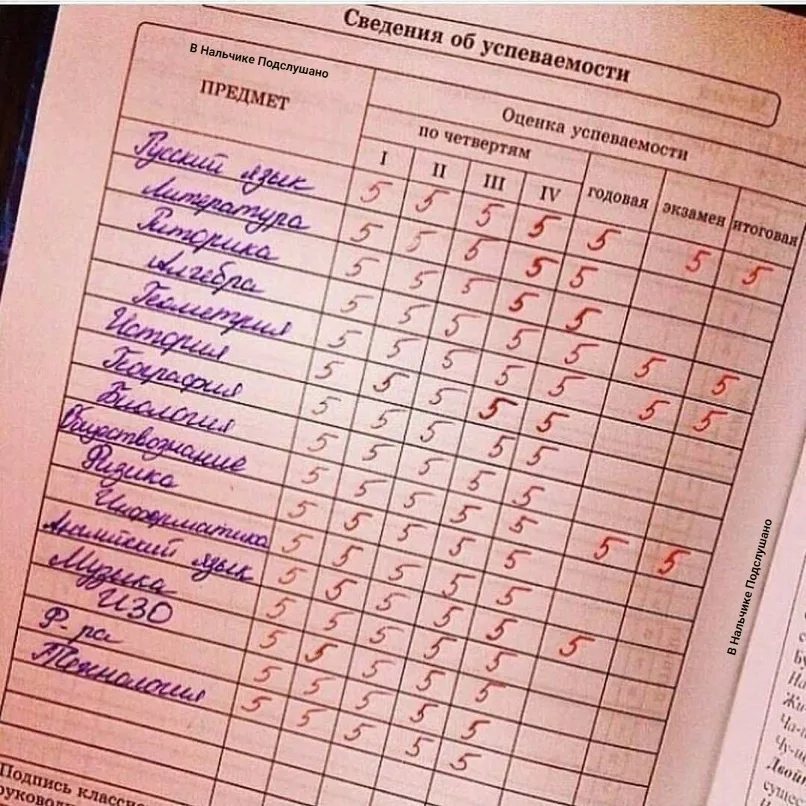 Сведения об успеваемости
В Нальчике Подслушано
ПРЕДМЕТ
Оценка успеваемости
по четвертям
I II III IV годовая экзамен итоговая
Русский язык 5 5 5 5 5 5 5
Литература 5 5 5 5 5
Риторика 5 5 5 5 5
Алгебра 5 5 5 5 5 5 5
Геометрия 5 5 5 5 5 5 5
История 5 5 5 5 5
География 5 5 5 5 5
Биология 5 5 5 5 5
Обществознание 5 5 5 5 5 5 5
Физика 5 5 5 5 5
Информатика 5 5 5 5 5
Английский язык 5 5 5 5 5 5
Музыка 5 5 5 5 5
ИЗО 5 5 5 5 5
Ф-ра 5 5 5 5 5
Технология 5 5 5 5 5
Подпись классн
руковод
В Нальчике Подслушано
Двой
сущес